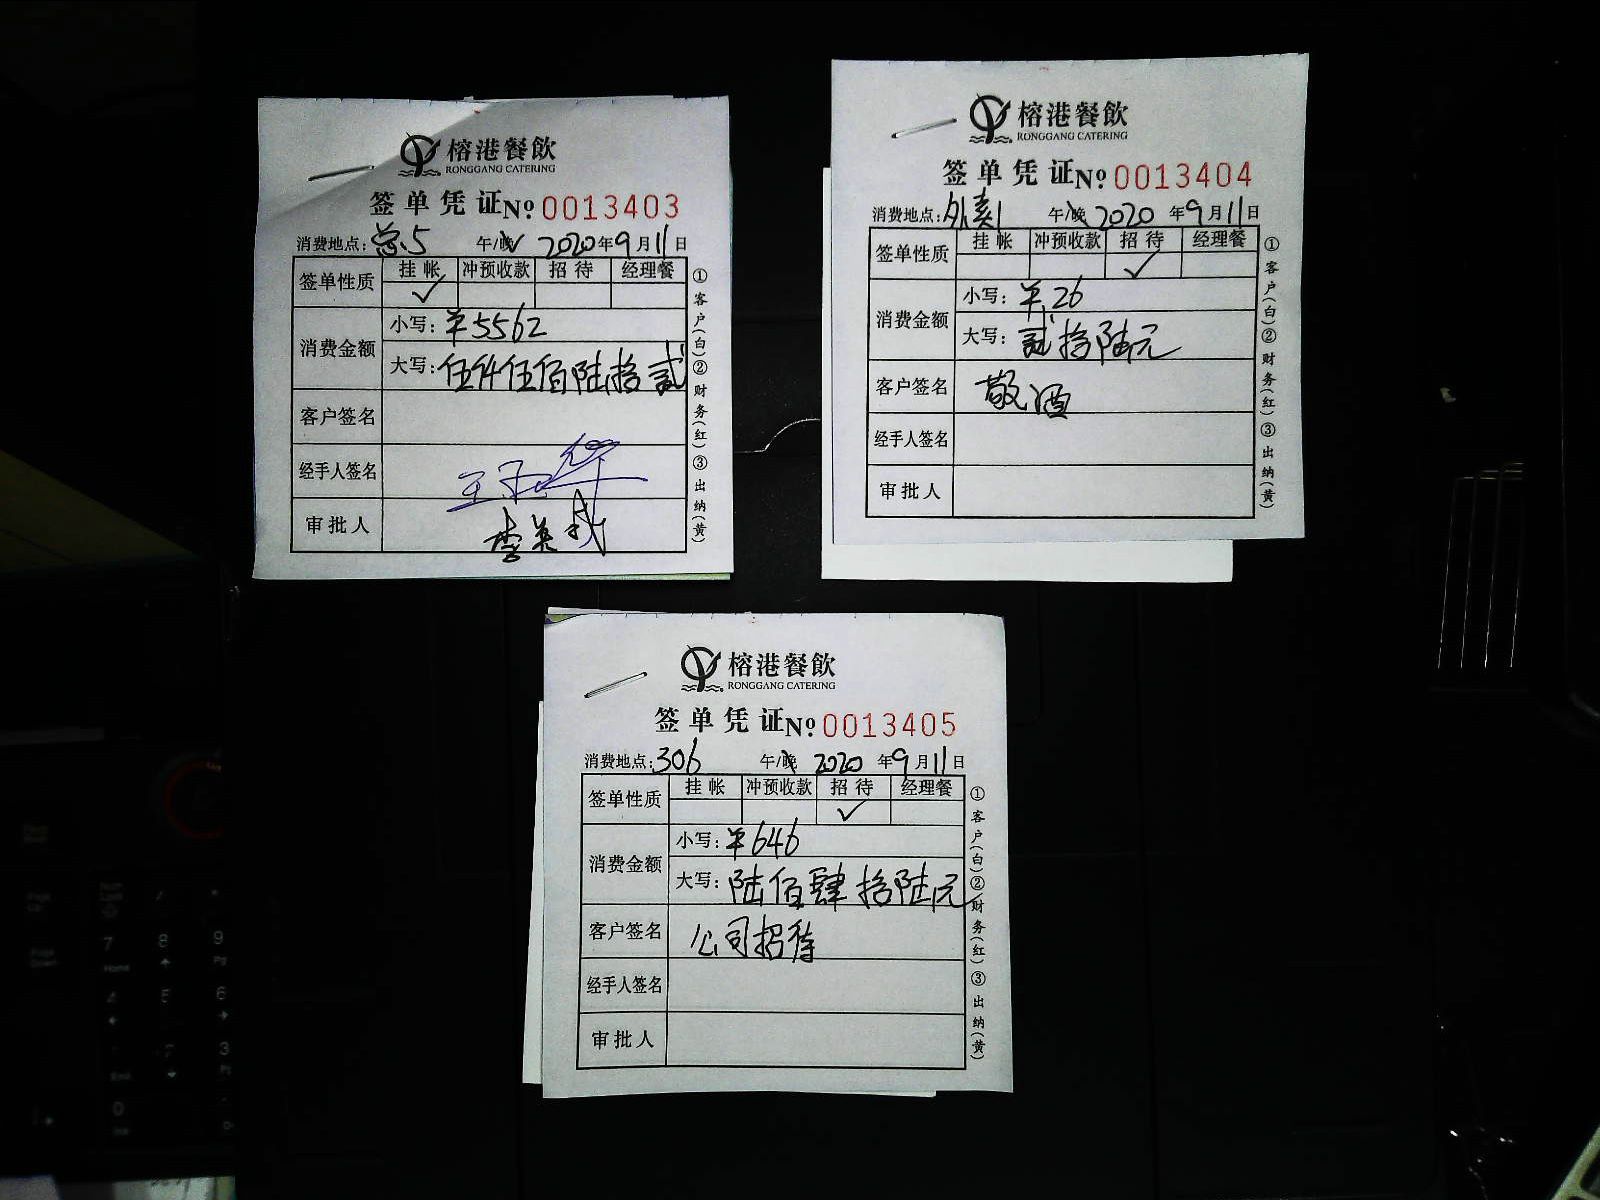 榕港餐飲
RONGGANG CATERING
签单凭证 No. 0013403
消费地点：总5 午/晚 2020年9月11日
签单性质 挂帐 冲预收款 招待 经理餐
✓
消费金额 小写：¥5562
大写：伍仟伍佰陆拾贰
客户签名
经手人签名
审批人
①客户(白)②财务(红)③出纳(黄)
榕港餐飲
RONGGANG CATERING
签单凭证 No. 0013404
消费地点：外卖1 午/晚 2020年9月11日
签单性质 挂帐 冲预收款 招待 经理餐
✓
消费金额 小写：¥26
大写：贰拾陆元
客户签名 敬酒
经手人签名
审批人
①客户(白)②财务(红)③出纳(黄)
榕港餐飲
RONGGANG CATERING
签单凭证 No. 0013405
消费地点：306 午/晚 2020年9月11日
签单性质 挂帐 冲预收款 招待 经理餐
✓
消费金额 小写：¥646
大写：陆佰肆拾陆元
客户签名 公司招待
经手人签名
审批人
①客户(白)②财务(红)③出纳(黄)
7 8 9
Home
4 5 6
3
0